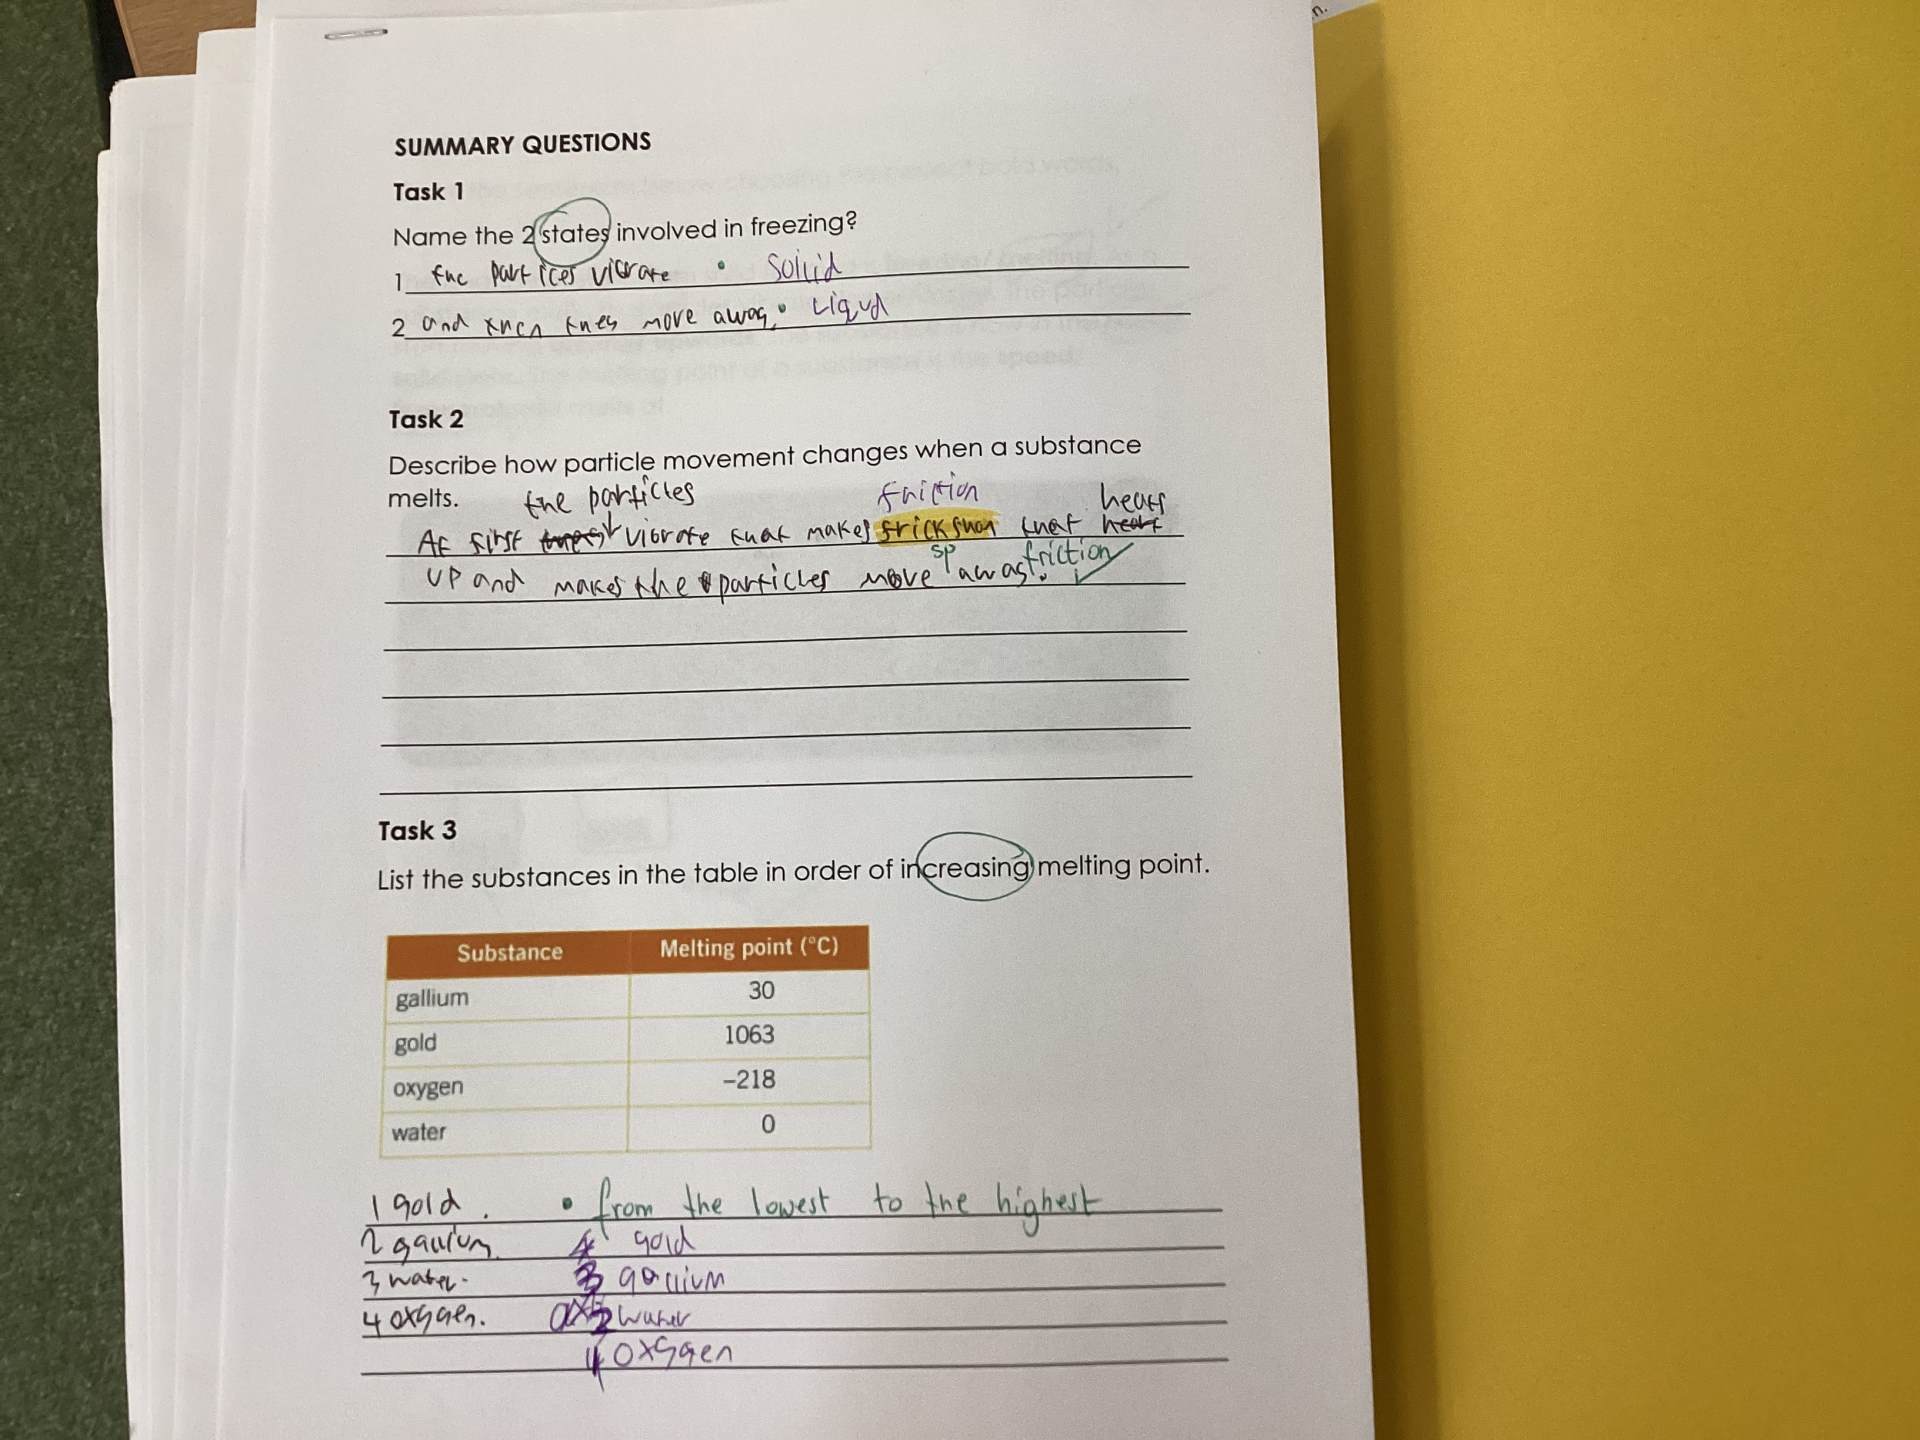 n.
SUMMARY QUESTIONS
Task 1
Name the 2 states involved in freezing?
1 the partices vibrate • Soliid
2 and then they move away. • Liqud
Task 2
Describe how particle movement changes when a substance
melts. the particles friction hears
At first vibrate that makes frickshon that heart
sp friction
up and makes the particles move away.
Task 3
List the substances in the table in order of increasing melting point.
Substance Melting point (°C)
gallium 30
gold 1063
oxygen −218
water 0
1 gold. • from the lowest to the highest
2 gallium. 4 gold
3 water. 3 gallium
4 oxygen. 2 water
1 oxygen